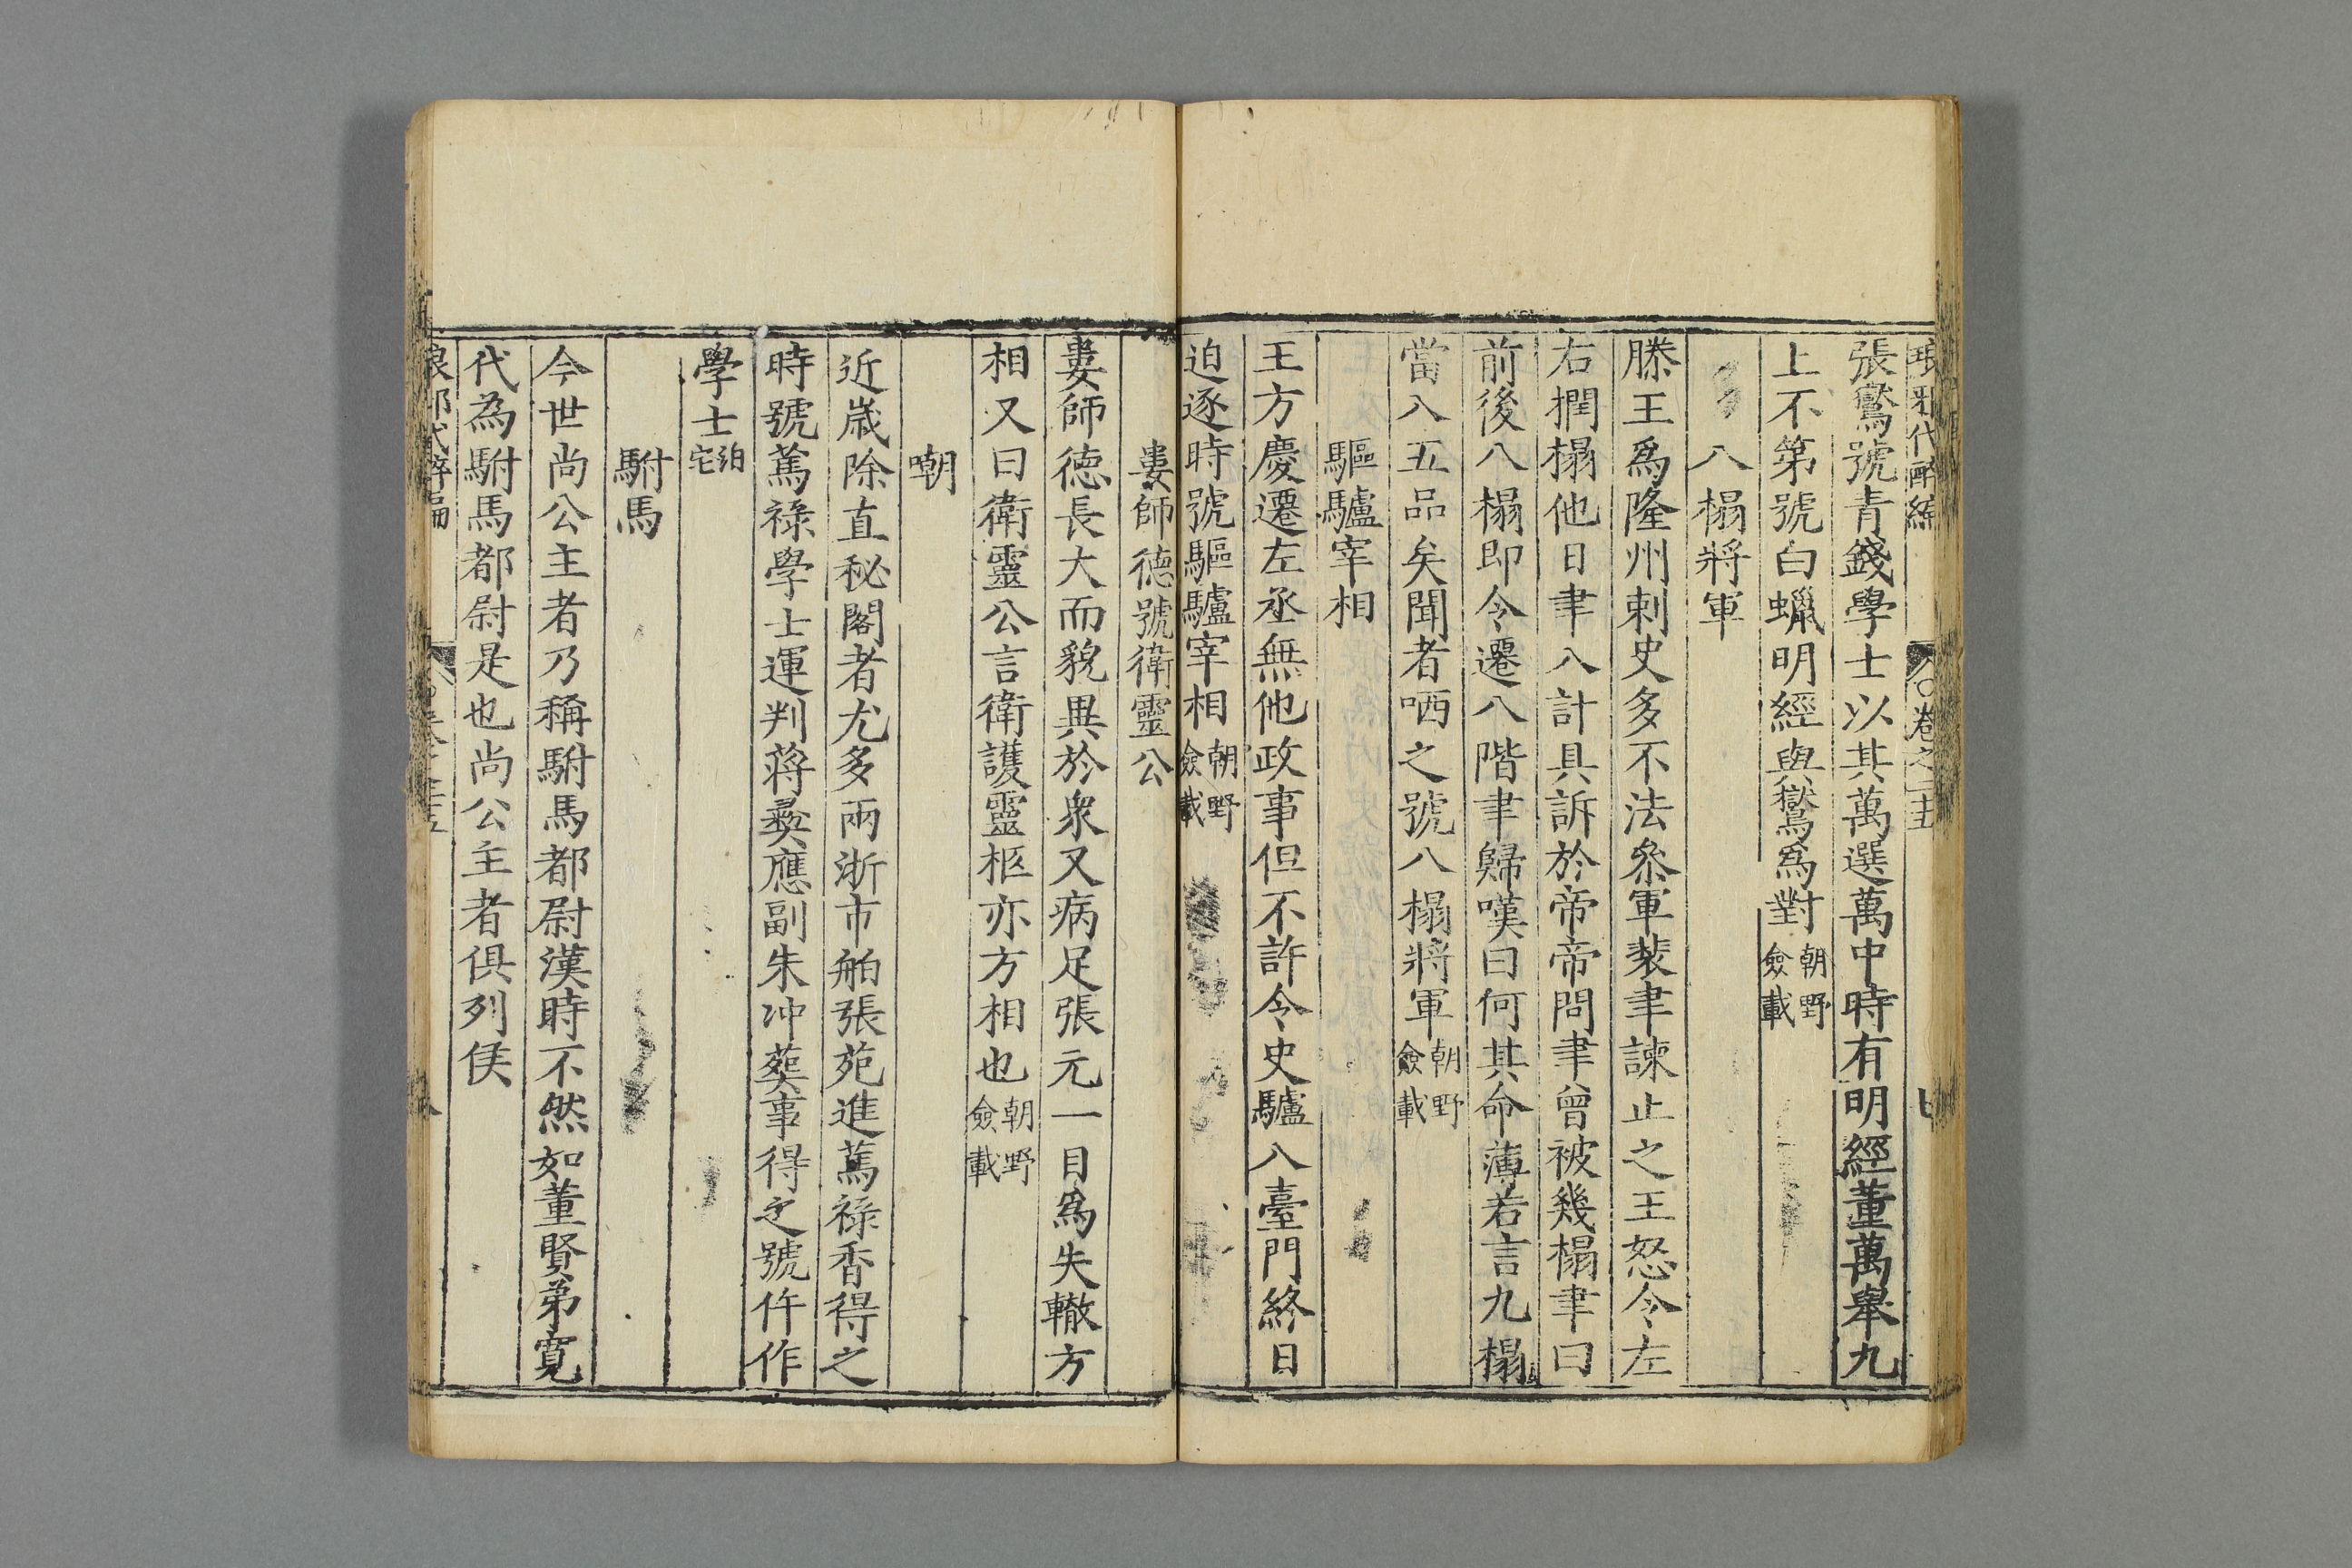 琅邪代醉編 卷之二十五
張鷟號青錢學士以其萬選萬中時有明經董萬舉九
上不第號白蠟明經與鷟爲對朝野僉載
八榻將軍
滕王爲隆州刺史多不法叅軍裴聿諫止之王怒令左
右撋榻他日聿入計具訴於帝帝問聿曾被幾榻聿曰
前後八榻即令遷八階聿歸嘆曰何其命薄若言九榻
當入五品矣聞者哂之號八榻將軍朝野僉載
驅驢宰相
王方慶遷左丞無他政事但不許令史驢入臺門終日
迫逐時號驅驢宰相朝野僉載
婁師德號衛靈公
婁師德長大而貌異於衆又病足張元一目爲失轍方
相又曰衛靈公言衛護靈柩亦方相也朝野僉載
嘲
近歲除直秘閣者尤多兩浙市舶張苑進篤祿香得之
時號篤祿學士運判蔣彞應副朱冲葬事得之號仵作
學士泊宅
駙馬
今世尚公主者乃稱駙馬都尉漢時不然如董賢弟寬
代為駙馬都尉是也尚公主者俱列侯